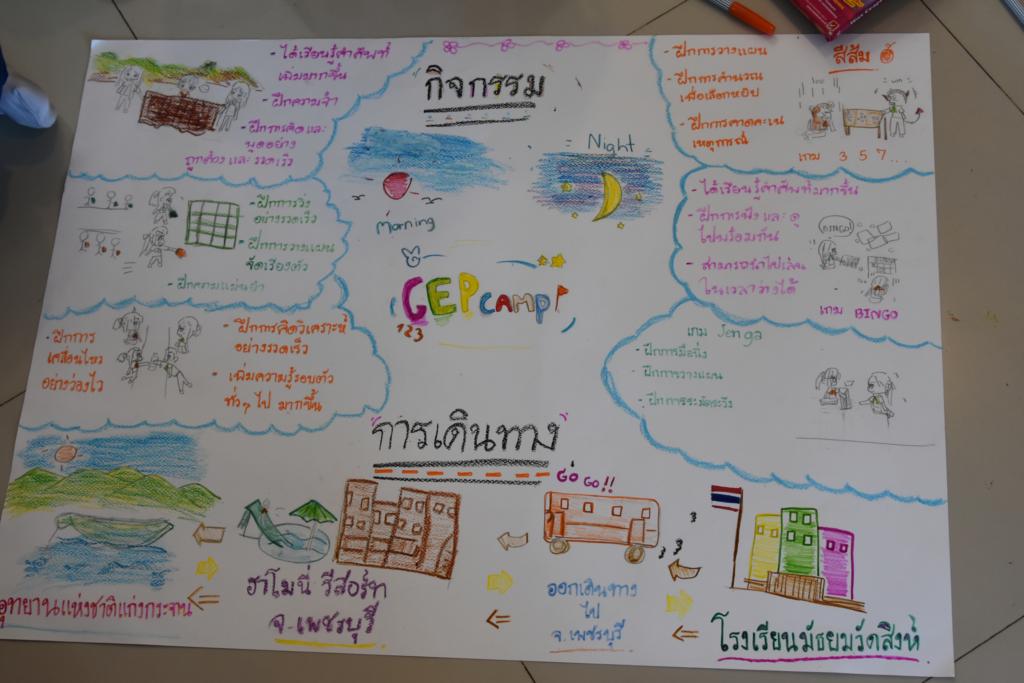 กิจกรรม
- ได้เรียนรู้คำศัพท์
เพิ่มมากขึ้น
- ฝึกความจำ
- ฝึกการคิดและ
พูดอย่าง
ถูกต้องและรวดเร็ว
- ฝึกการวิ่ง
อย่างรวดเร็ว
- ฝึกการวางแผน
จัดเรียงตัว
- ฝึกความแม่นยำ
- ฝึกการ
เคลื่อนไหว
อย่างว่องไว
- ฝึกการคิดวิเคราะห์
อย่างรวดเร็ว
- เพิ่มความรู้รอบตัว
ทั่วๆ ไป มากขึ้น
Morning
Night
GEP camp!
123
- ฝึกการวางแผน
- ฝึกการคำนวณ
เพื่อเลือกหยิบ
- ฝึกการคาดคะเน
เหตุการณ์
สีส้ม
เกม 3 5 7...
- ได้เรียนรู้คำศัพท์มากขึ้น
- ฝึกการฟังและดู
ไปพร้อมกัน
- สามารถนำไปเล่น
ในเวลาว่างได้
BINGO
เกม BINGO
เกม Jenga
- ฝึกการมือนิ่ง
- ฝึกการวางแผน
- ฝึกการระมัดระวัง
"การเดินทาง"
Go Go!!
อุทยานแห่งชาติแก่งกระจาน
ฮาโมนี่ รีสอร์ท
จ.เพชรบุรี
ออกเดินทาง
ไป
จ.เพชรบุรี
โรงเรียนมัธยมวัดสิงห์